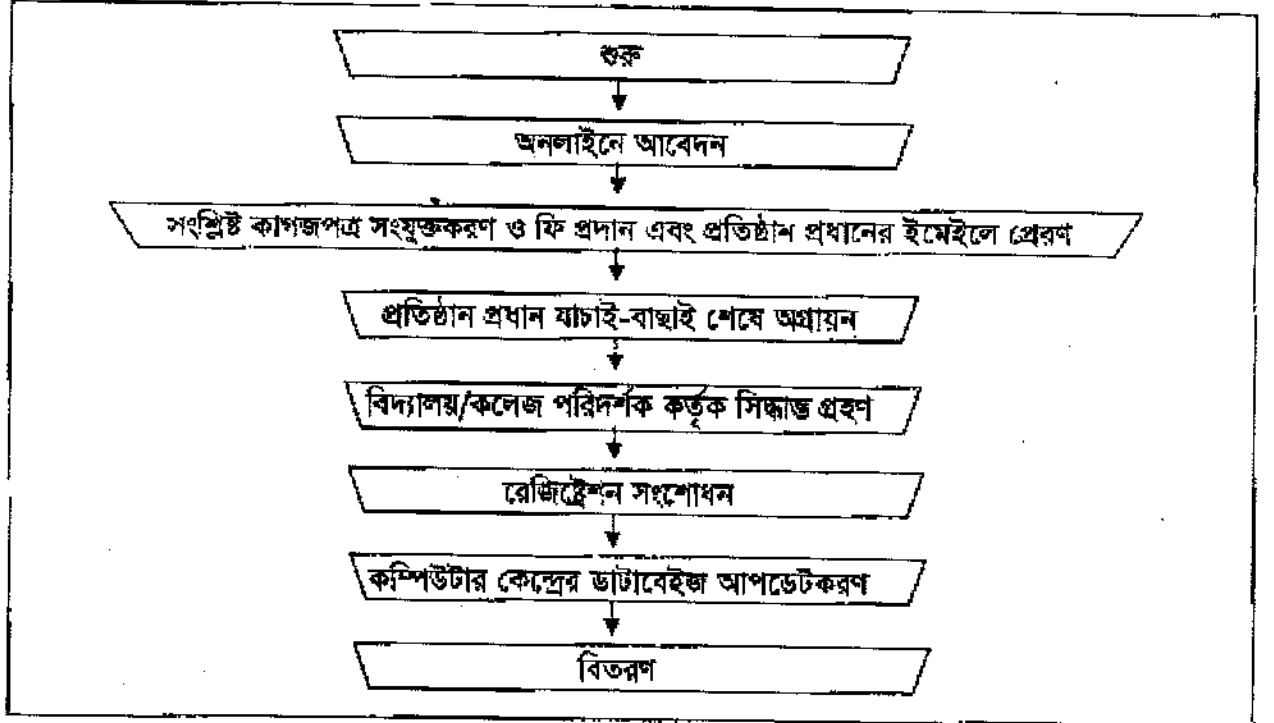 শুরু
অনলাইনে আবেদন
সংশ্লিষ্ট কাগজপত্র সংযুক্তকরণ ও ফি প্রদান এবং প্রতিষ্ঠান প্রধানের ইমেইলে প্রেরণ
প্রতিষ্ঠান প্রধান যাচাই-বাছাই শেষে অগ্রায়ন
বিদ্যালয়/কলেজ পরিদর্শক কর্তৃক সিদ্ধান্ত গ্রহণ
রেজিষ্ট্রেশন সংশোধন
কম্পিউটার কেন্দ্রের ডাটাবেইজ আপডেটকরণ
বিতরণ